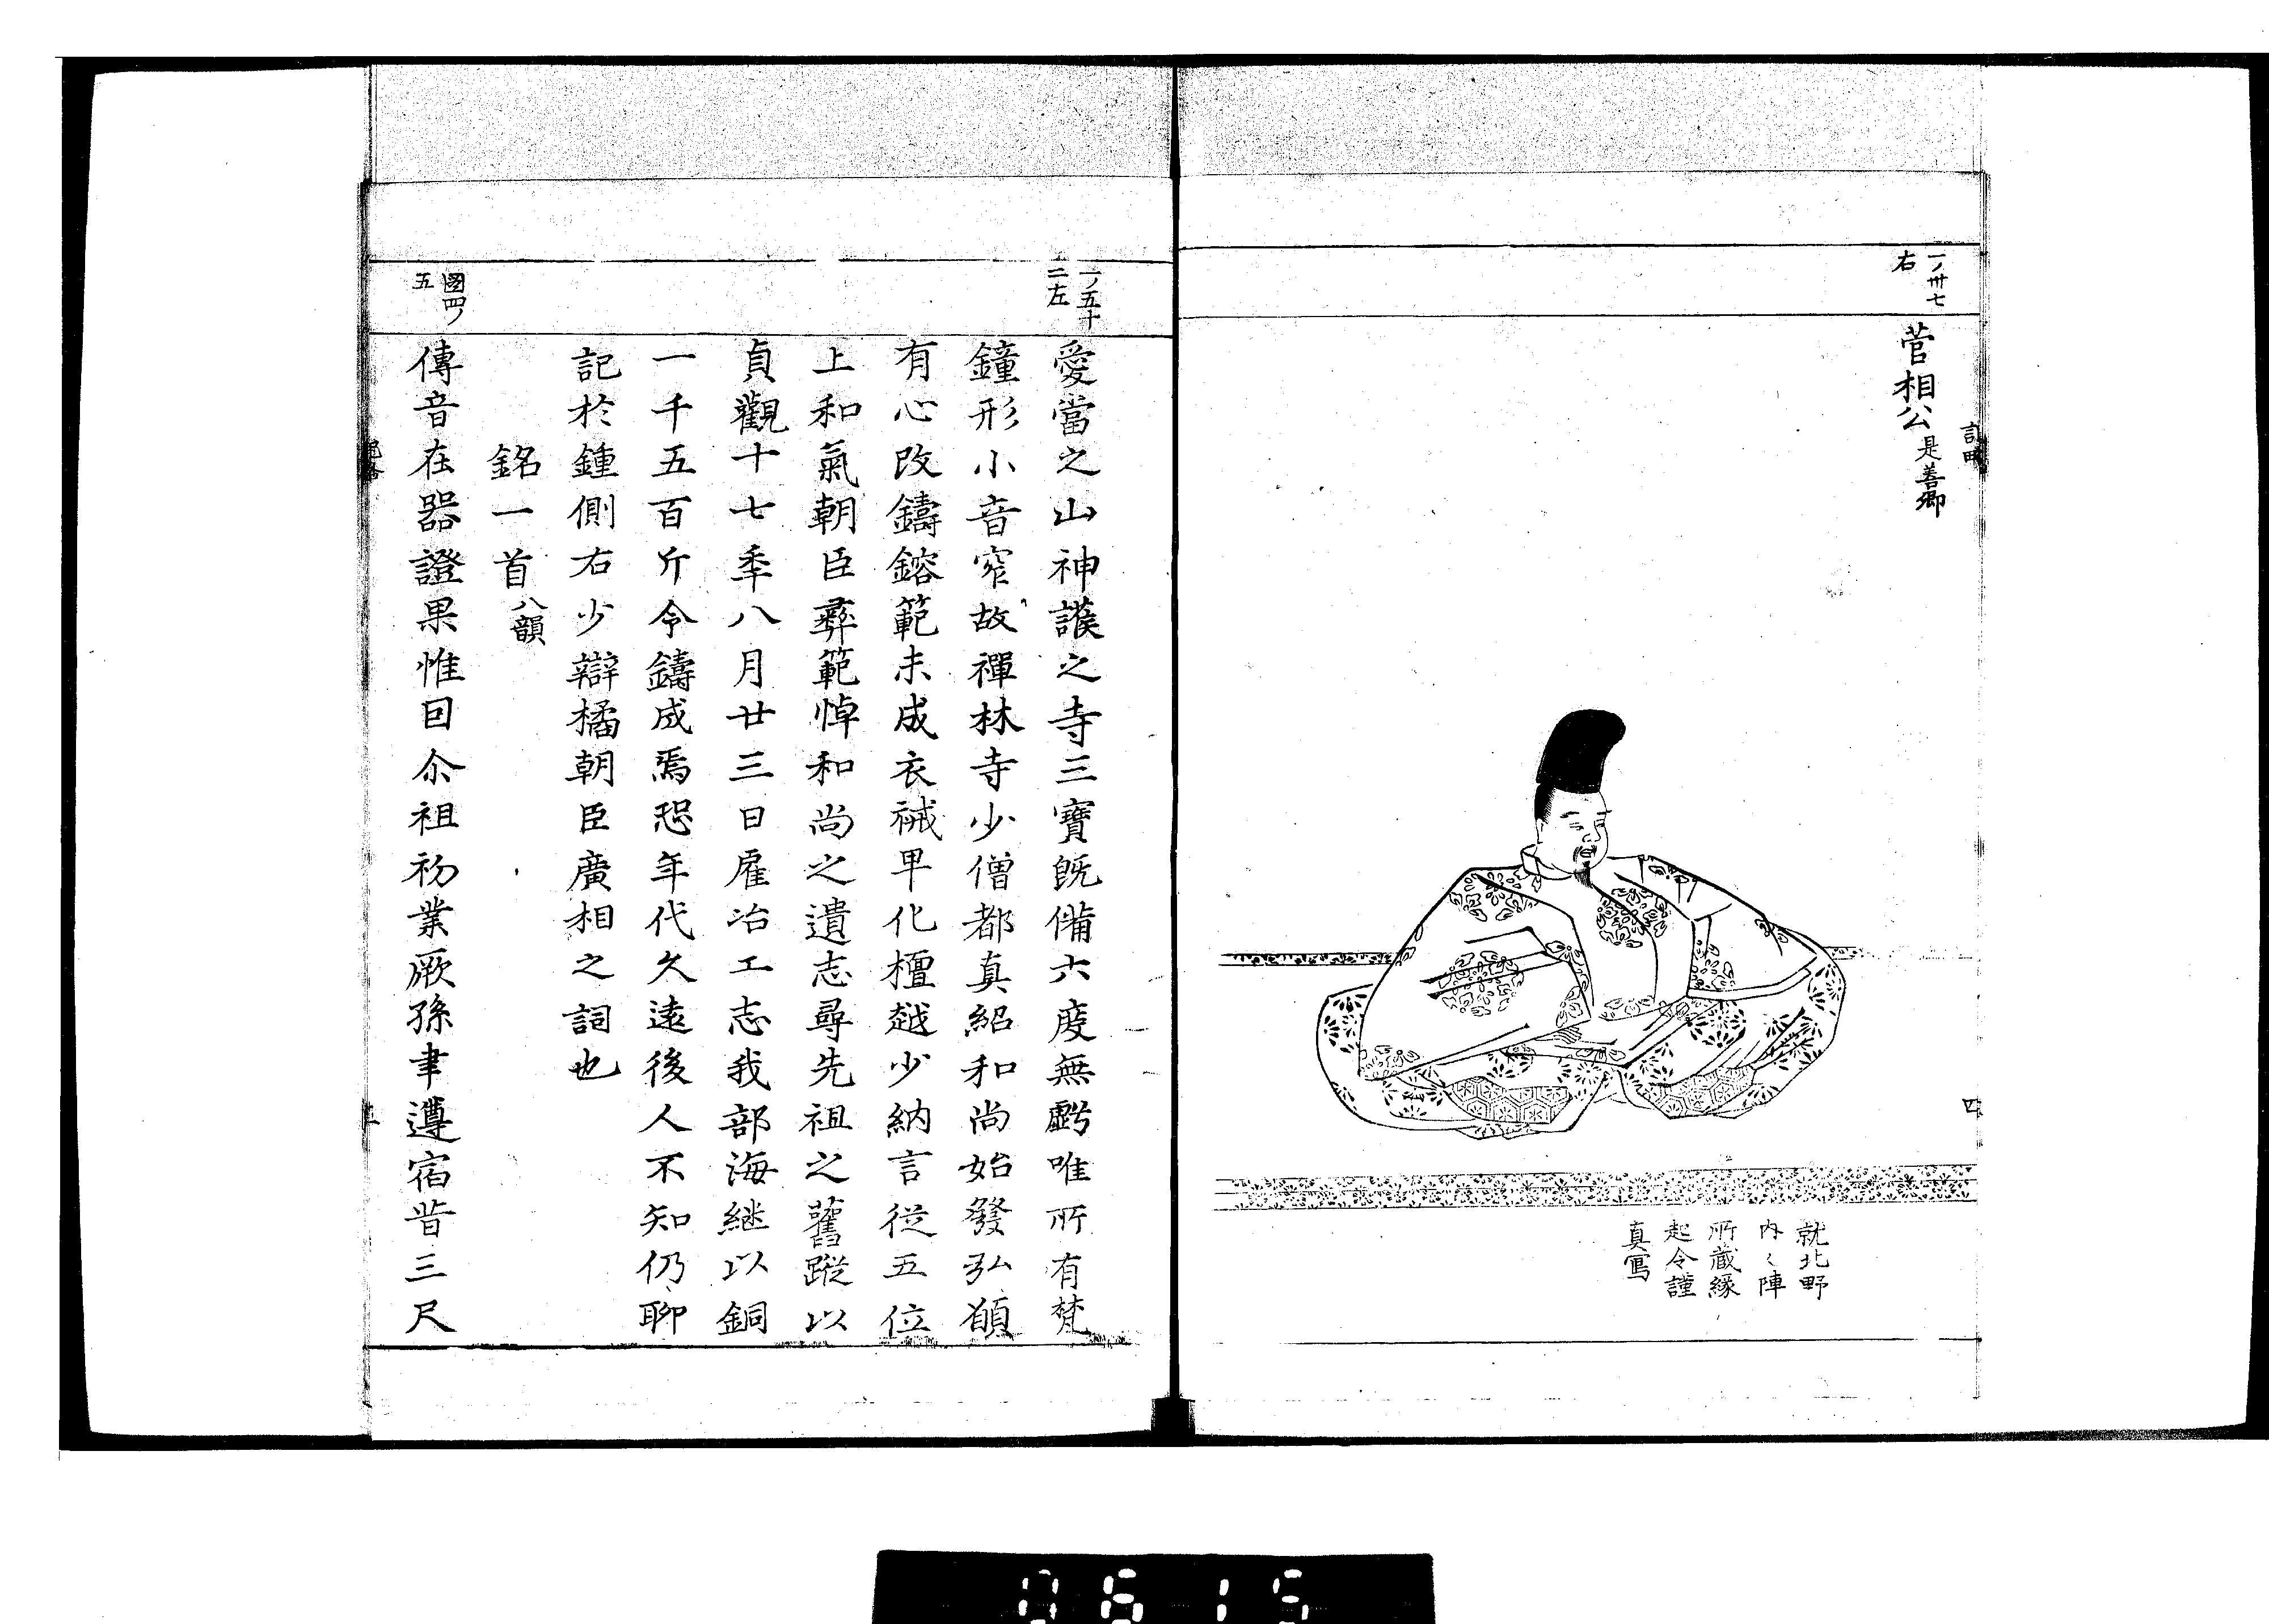 一ノ卅七
右
菅相公是善卿
四
就北野
内々陣
所蔵縁
起令謹
真寫
一ノ五十
二左
愛當之山神護之寺三寶既備六度無虧唯所有梵
鐘形小音窄故禪林寺少僧都真紹和尚始發弘願
有心改鑄鎔範未成衣祴早化檀越少納言従五位
上和氣朝臣彜範悼和尚之遺志尋先祖之舊蹤以
貞觀十七秊八月廿三日雇冶工志我部海継以銅
一千五百斤令鑄成焉恐年代久遠後人不知仍聊
記於鍾側右少辯橘朝臣廣相之詞也
銘一首八韻
國四ノ
五
傳音在器證果惟因尒祖初業厥孫聿遵宿昔三尺
0615